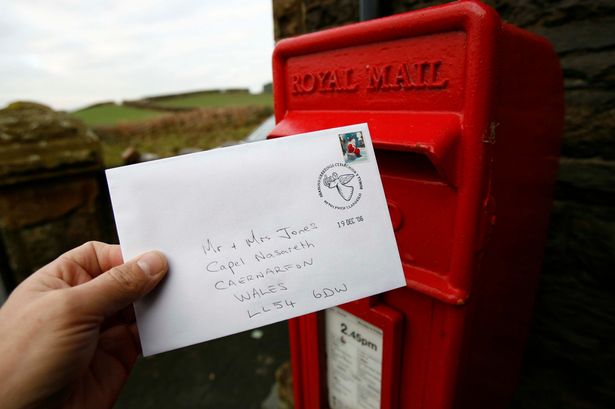 ROYAL MAIL
19 DEC '06
Mr + Mrs Jones
Capel Nasareth
CAERNARFON
WALES
LL54 6DW
2.45pm